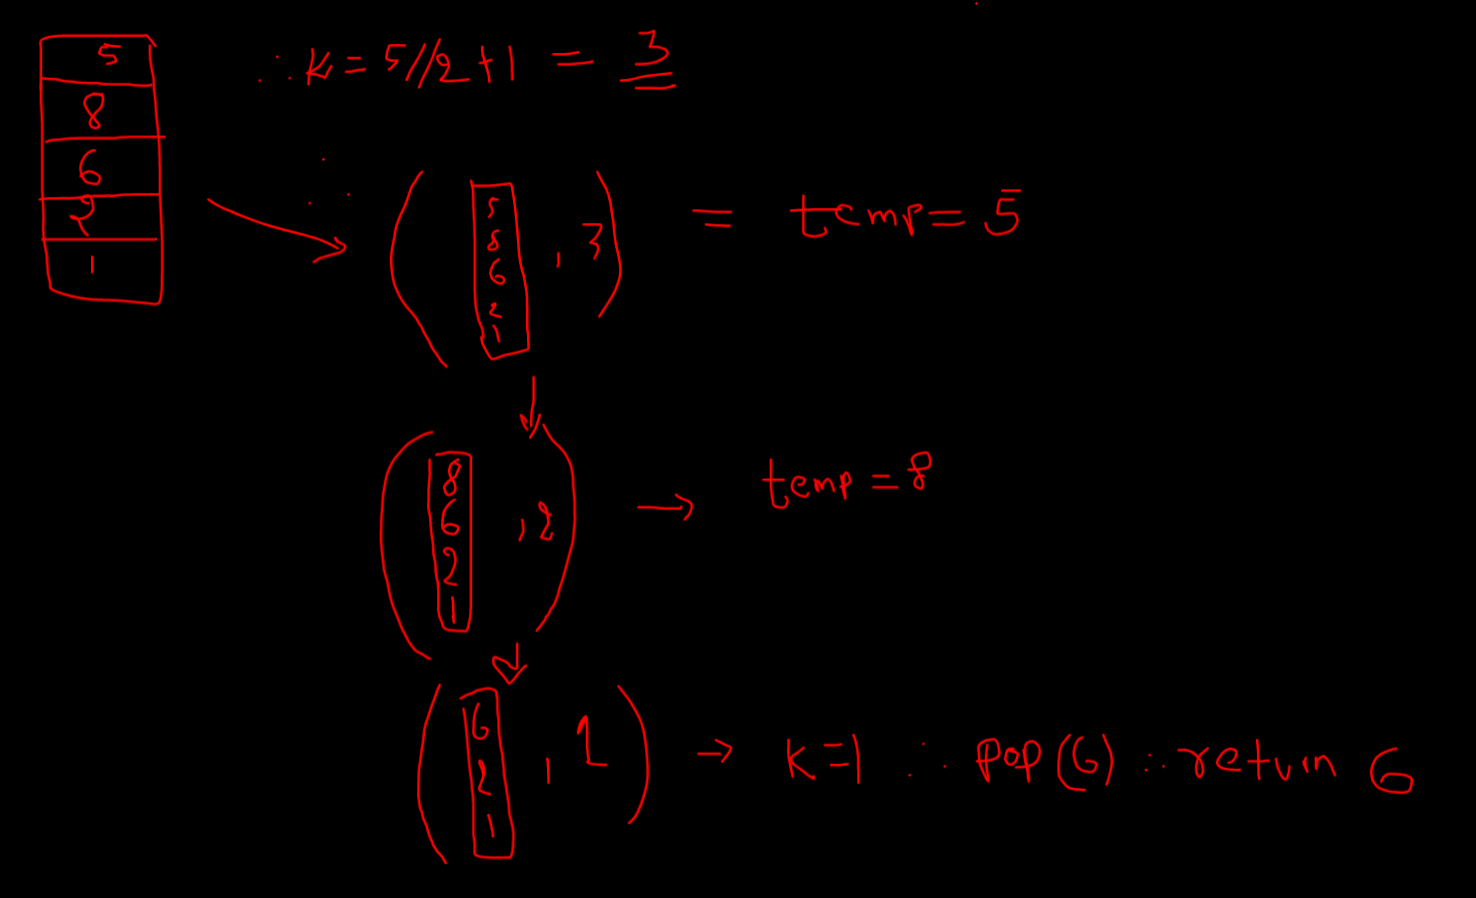 5
8
6
2
1
∴ K = 5//2 + 1 = 3
∴
( 5 8 6 2 1 , 3 ) = temp = 5
( 8 6 2 1 , 2 ) → temp = 8
( 6 2 1 , 1 ) → K = 1 ∴ pop(6) ∴ return 6